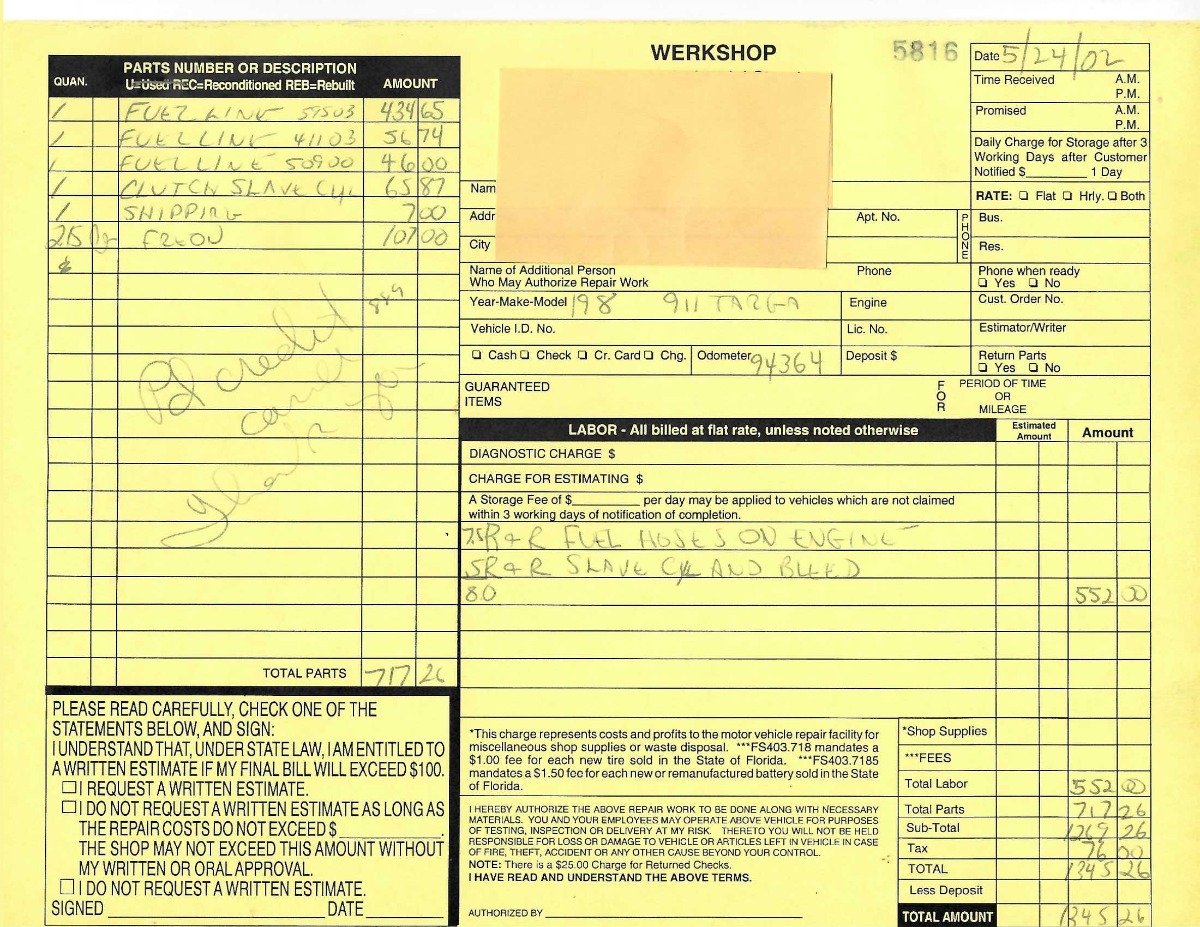 WERKSHOP
5816
Date 5/24/02
Time Received A.M. P.M.
Promised A.M. P.M.
Daily Charge for Storage after 3
Working Days after Customer
Notified $ 1 Day
RATE: ☐ Flat ☐ Hrly. ☐ Both
QUAN. PARTS NUMBER OR DESCRIPTION AMOUNT
U=Used REC=Reconditioned REB=Rebuilt
1 FUEL LINE 51503 434 65
1 FUEL LINE 41103 56 74
1 FUEL LINE 50900 46 00
1 CLUTCH SLAVE CYL 65 87
1 SHIPPING 7 00
FREON 107 00
889
Pd credit
card
Thank you
TOTAL PARTS 717 26
Name
Addr
City
Apt. No.
PHONE
Bus.
Res.
Name of Additional Person
Who May Authorize Repair Work
Phone
Phone when ready
☐ Yes ☐ No
Year-Make-Model 198 911 TARGA
Engine
Cust. Order No.
Vehicle I.D. No.
Lic. No.
Estimator/Writer
☐ Cash ☐ Check ☐ Cr. Card ☐ Chg.
Odometer 94364
Deposit $
Return Parts
☐ Yes ☐ No
GUARANTEED
ITEMS
FOR
PERIOD OF TIME
OR
MILEAGE
LABOR - All billed at flat rate, unless noted otherwise
Estimated
Amount
Amount
DIAGNOSTIC CHARGE $
CHARGE FOR ESTIMATING $
A Storage Fee of $ per day may be applied to vehicles which are not claimed
within 3 working days of notification of completion.
7.5 R+R FUEL HOSES ON ENGINE
.5 R+R SLAVE CYL AND BLEED
8.0 552 00
PLEASE READ CAREFULLY, CHECK ONE OF THE
STATEMENTS BELOW, AND SIGN:
I UNDERSTAND THAT, UNDER STATE LAW, I AM ENTITLED TO
A WRITTEN ESTIMATE IF MY FINAL BILL WILL EXCEED $100.
☐ I REQUEST A WRITTEN ESTIMATE.
☐ I DO NOT REQUEST A WRITTEN ESTIMATE AS LONG AS
THE REPAIR COSTS DO NOT EXCEED $ .
THE SHOP MAY NOT EXCEED THIS AMOUNT WITHOUT
MY WRITTEN OR ORAL APPROVAL.
☐ I DO NOT REQUEST A WRITTEN ESTIMATE.
SIGNED DATE
*This charge represents costs and profits to the motor vehicle repair facility for
miscellaneous shop supplies or waste disposal. ***FS403.718 mandates a
$1.00 fee for each new tire sold in the State of Florida. ***FS403.7185
mandates a $1.50 fee for each new or remanufactured battery sold in the State
of Florida.
I HEREBY AUTHORIZE THE ABOVE REPAIR WORK TO BE DONE ALONG WITH NECESSARY
MATERIALS. YOU AND YOUR EMPLOYEES MAY OPERATE ABOVE VEHICLE FOR PURPOSES
OF TESTING, INSPECTION OR DELIVERY AT MY RISK. THERETO YOU WILL NOT BE HELD
RESPONSIBLE FOR LOSS OR DAMAGE TO VEHICLE OR ARTICLES LEFT IN VEHICLE IN CASE
OF FIRE, THEFT, ACCIDENT OR ANY OTHER CAUSE BEYOND YOUR CONTROL.
NOTE: There is a $25.00 Charge for Returned Checks.
I HAVE READ AND UNDERSTAND THE ABOVE TERMS.
AUTHORIZED BY
*Shop Supplies
***FEES
Total Labor 552 00
Total Parts 717 26
Sub-Total 1269 26
Tax 76 00
TOTAL 1345 26
Less Deposit
TOTAL AMOUNT 1345 26